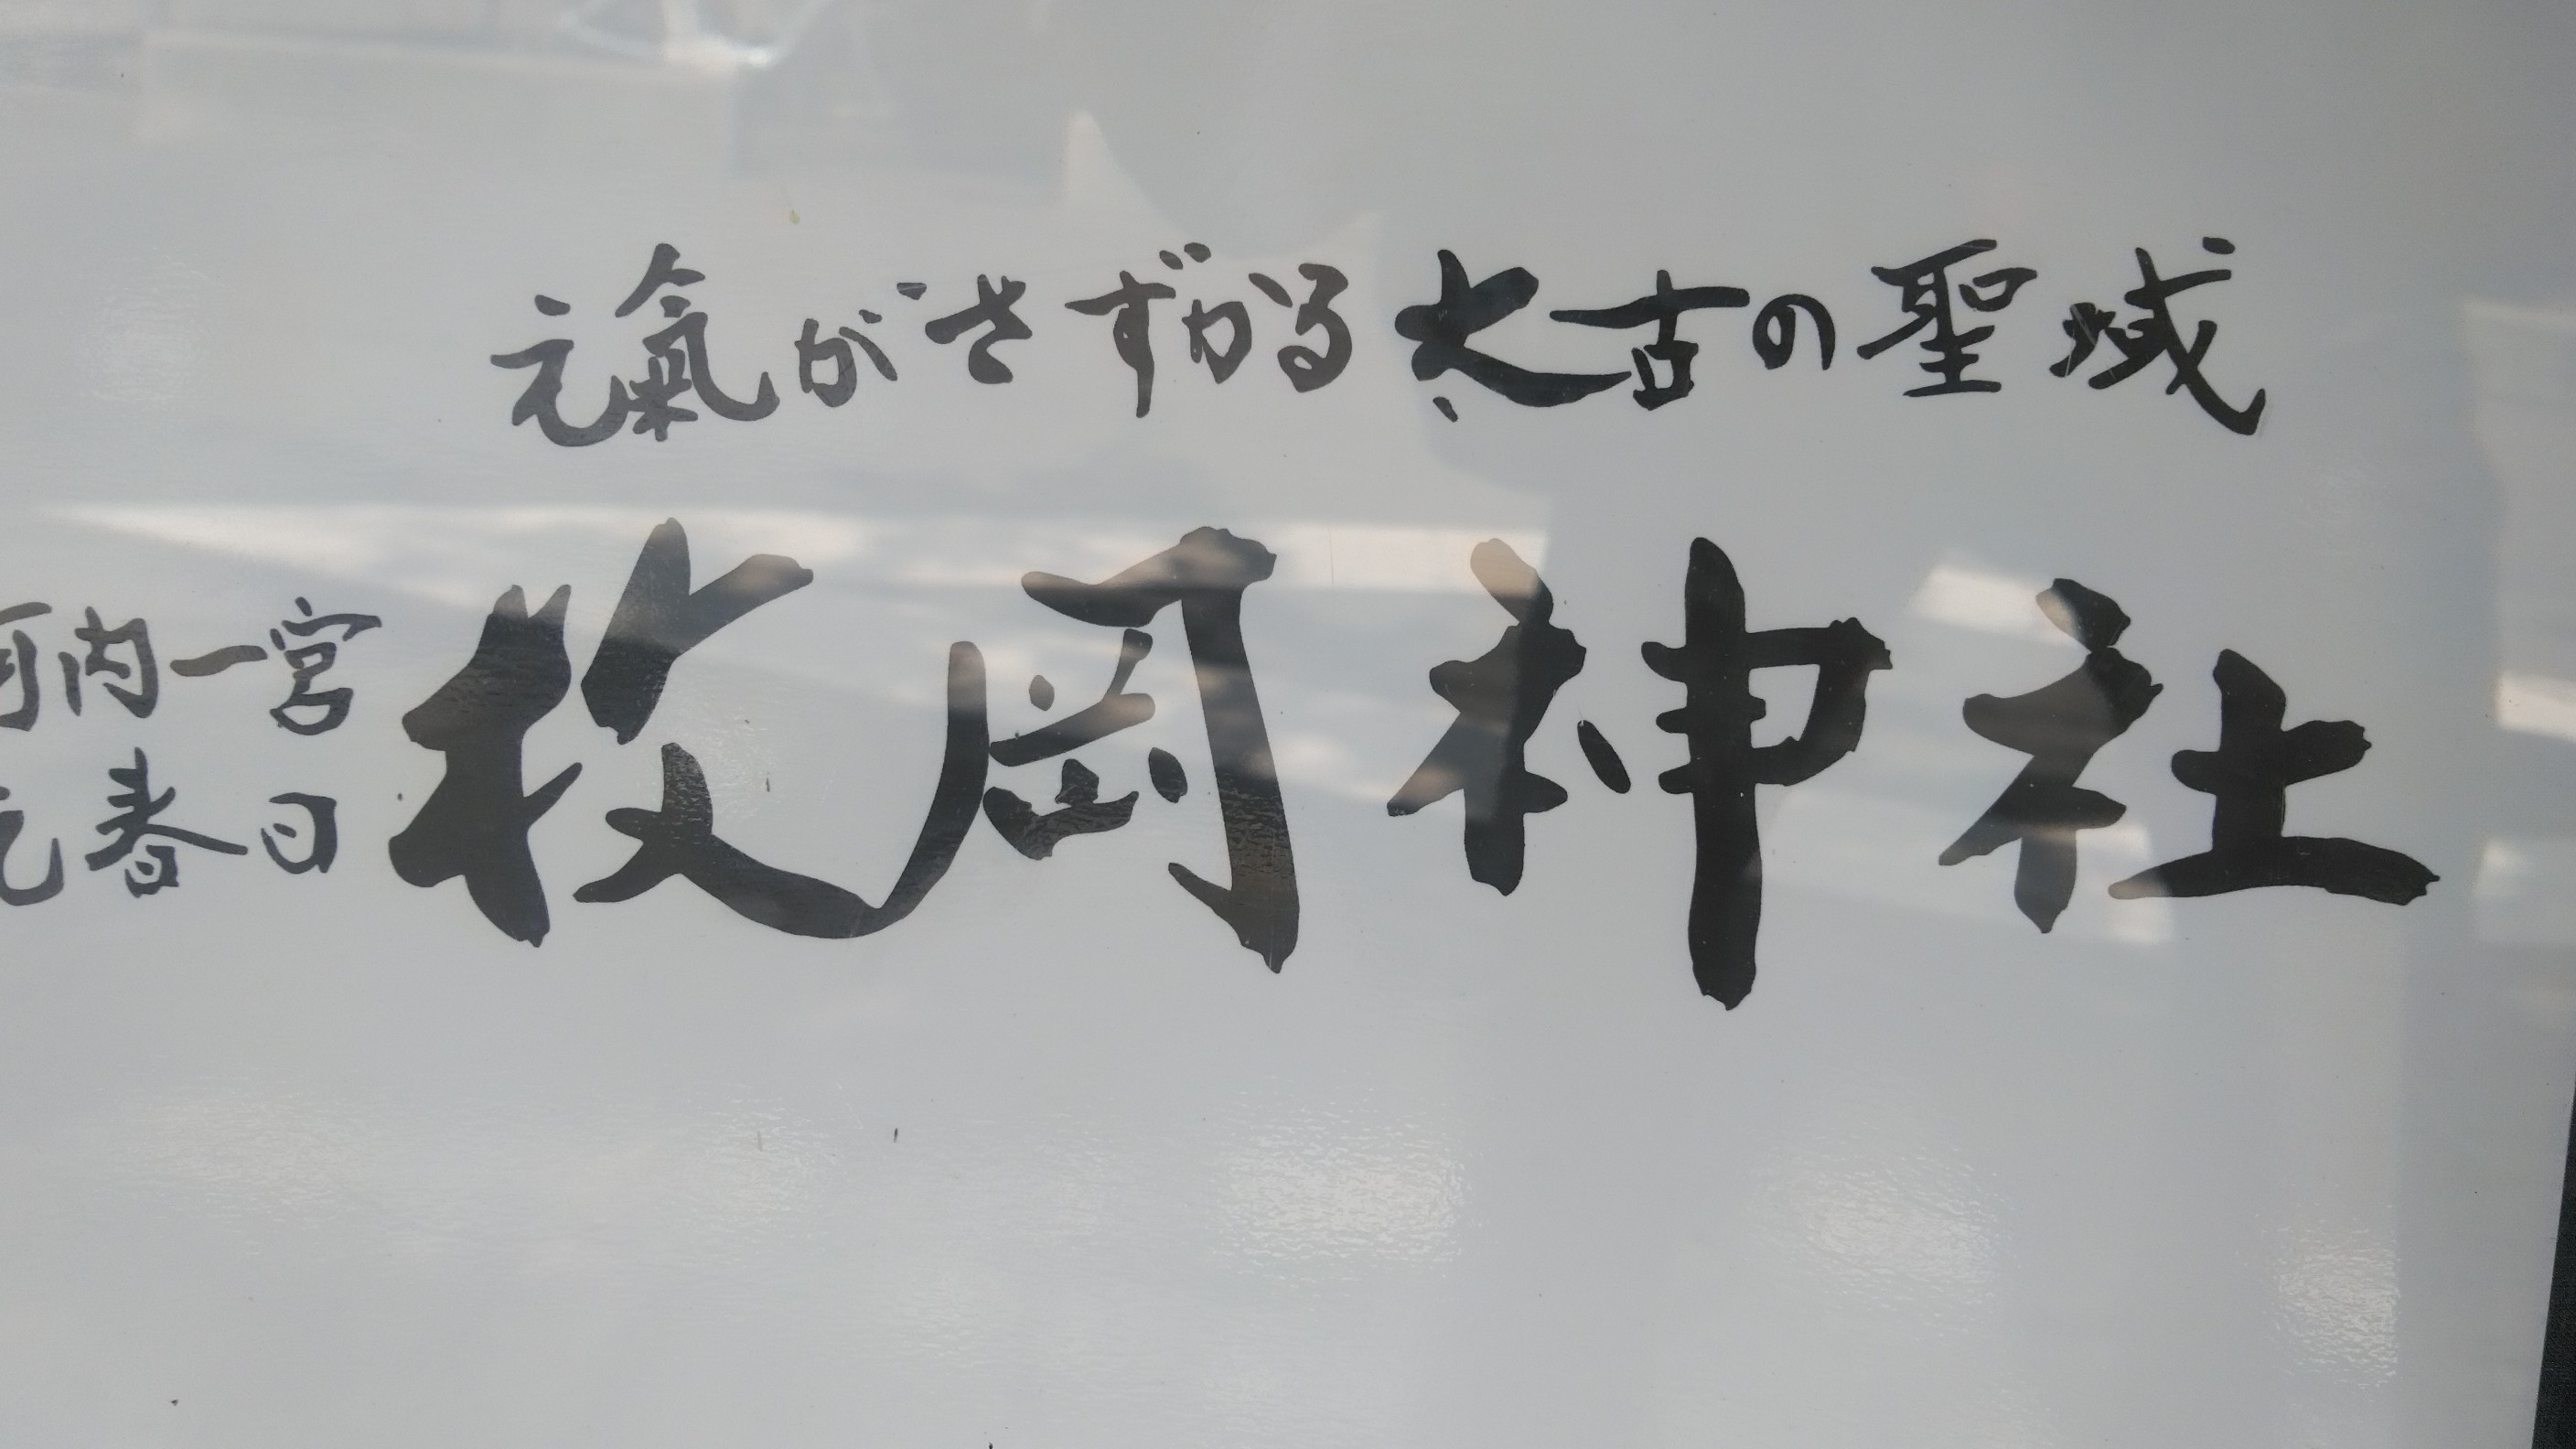 元氣がさずかる太古の聖域
河内一宮
元春日
枚岡神社